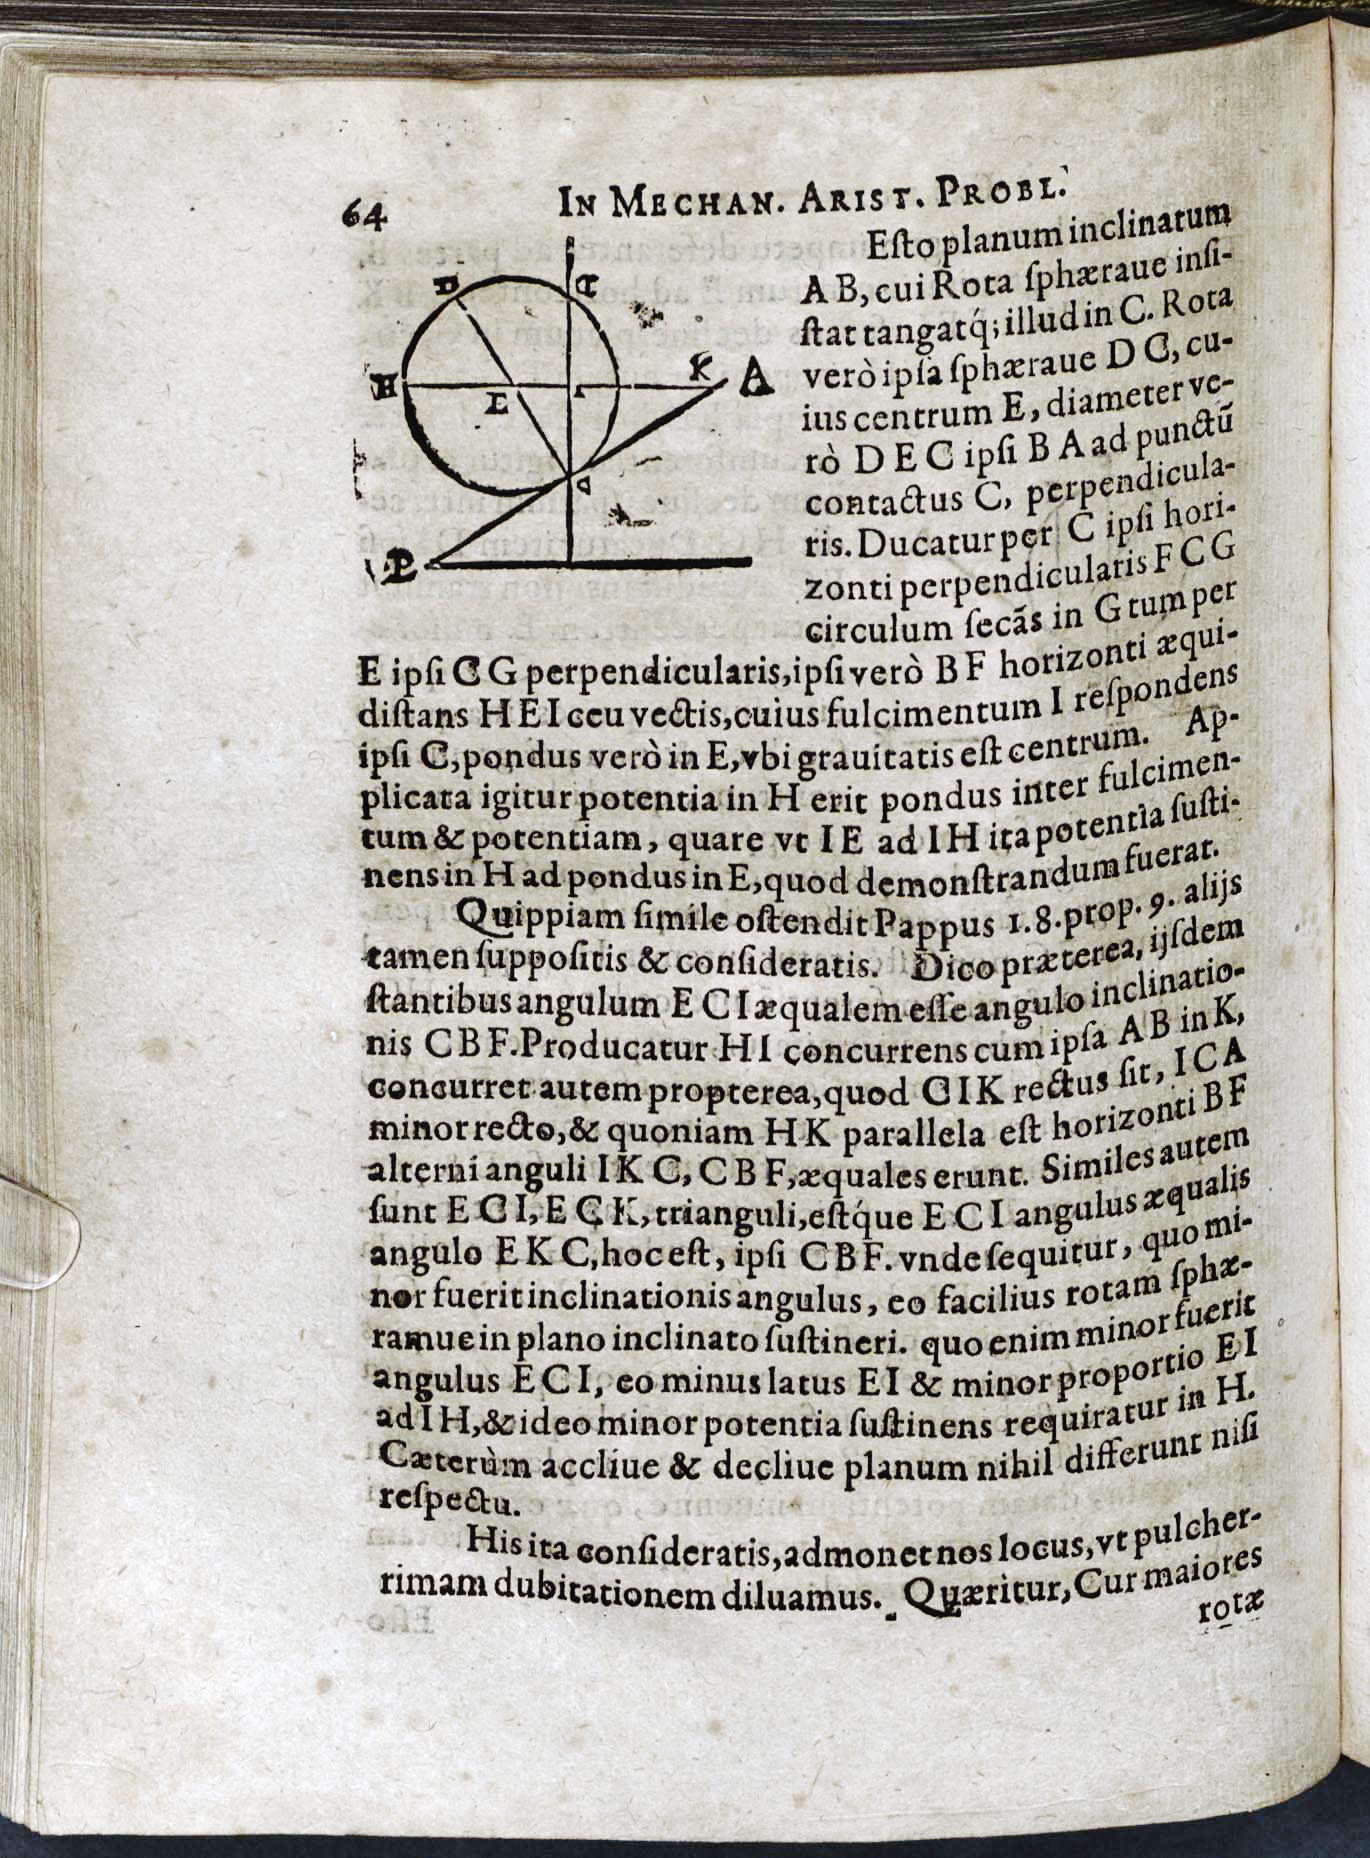 64 IN MECHAN. ARIST. PROBL.
Eſto planum inclinatum
A B, cui Rota ſphæraue inſi-
ſtat tangatq́; illud in C. Rota
verò ipſa ſphæraue D C, cu-
ius centrum E, diameter ve-
rò D E C ipſi B A ad punctũ
contactus C, perpendicula-
ris. Ducatur per C ipſi hori-
zonti perpendicularis F C G
circulum ſecãs in G tum per
E ipſi C G perpendicularis, ipſi verò B F horizonti æqui-
diſtans H E I ceu vectis, cuius fulcimentum I reſpondens
ipſi C, pondus verò in E, vbi grauitatis eſt centrum. Ap-
plicata igitur potentia in H erit pondus inter fulcimen-
tum & potentiam, quare vt I E ad I H ita potentia ſuſti-
nens in H ad pondus in E, quod demonſtrandum fuerat.
Quippiam ſimile oſtendit Pappus 1. 8. prop. 9. alijs
tamen ſuppoſitis & conſideratis. Dico præterea, ijſdem
ſtantibus angulum E C I æqualem eſſe angulo inclinatio-
nis C B F. Producatur H I concurrens cum ipſa A B in K,
concurret autem propterea, quod C I K rectus ſit, I C A
minor recto, & quoniam H K parallela eſt horizonti B F
alterni anguli I K C, C B F, æquales erunt. Similes autem
ſunt E C I, E C K, trianguli, eſtq́ue E C I angulus æqualis
angulo E K C, hoc eſt, ipſi C B F. vnde ſequitur, quo mi-
nor fuerit inclinationis angulus, eo facilius rotam ſphæ-
ramue in plano inclinato ſuſtineri. quo enim minor fuerit
angulus E C I, eo minus latus E I & minor proportio E I
ad I H, & ideo minor potentia ſuſtinens requiratur in H.
Cæterùm accliue & decliue planum nihil differunt niſi
reſpectu.
His ita conſideratis, admonet nos locus, vt pulcher-
rimam dubitationem diluamus. Quæritur, Cur maiores
rotæ
D
H
E
I
K
A